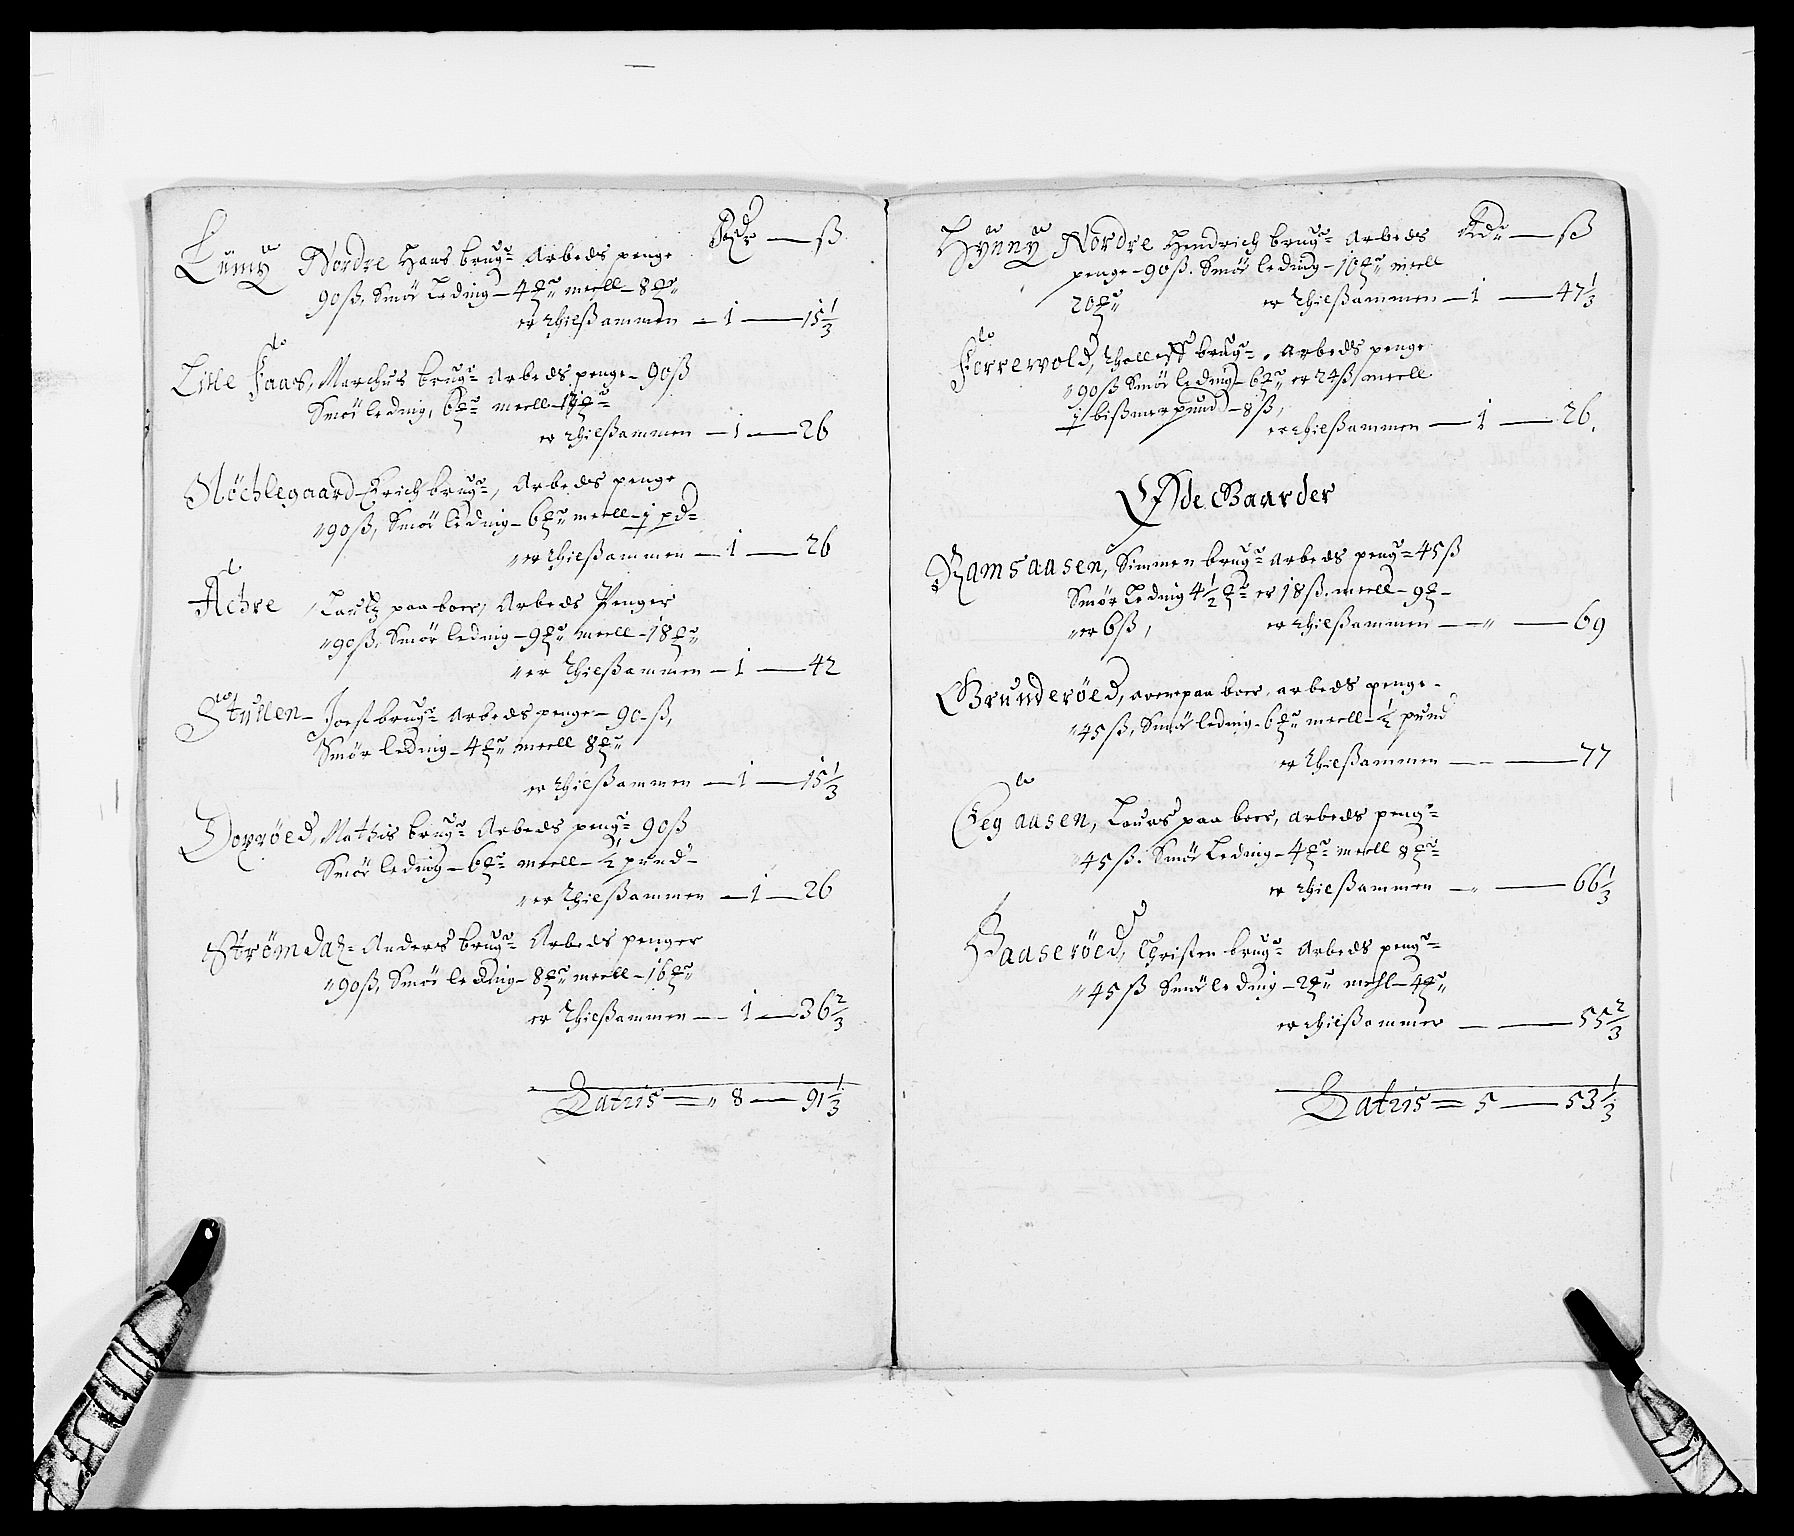 Rdr — ß
Lumÿ Nordre Hans brugr Arbeds penge
90 ß, Smör Leding – 4 ℔r meell – 8 ℔r
er thilßammen – 1 — 15 1/3
Lille Faas, Marchus brugr Arbeds penge – 90 ß
Smör leding, 6 ℔r meell – 12 ℔r
er thilßammen – 1 — 26
Nöchlegaard Erich brugr, Arbeds penge
90 ß, Smör leding – 6 ℔r meell – j pd
er thilßammen – 1 — 26
Achre, Lauritz paa boer, Arbeds Penger
90 ß, Smör leding – 9 ℔r meell – 18 ℔r
er thilßammen – 1 — 42
Stullen – Joest brugr Arbeds penge – 90 – ß,
Smör leding – 4 ℔r meell 8 ℔r
er thilßammen – 1 — 15 1/3
Dorröed, Mathis brugr Arbeds pengr 90 ß
Smör leding – 6 ℔r meell – 1/2 pund
er thilßammen – 1 — 26
Strömdal – Anders brugr Arbeds penger
90 ß, Smör leding – 8 ℔r meell – 16 ℔r
er thilßammen – 1 — 36 2/3
Latris = 8 — 91 1/3
Rdr — ß
Hÿnnÿ Nordre Hendrich brugr Arbeds
penge – 90 ß. Smör leding – 10 ℔r meell
20 ℔r er thilßammen – 1 — 47 1/3
Forrewold, Tholleff brugr, Arbeds penge
90 ß Smör leding – 6 ℔r er 24 ß meell
j bißmerpund – 8 ß,
er thilßammen — 1 — 26.
Øde Gaarder
Ramsaasen, Simmen brugr Arbeds pengr 45 ß
Smör Leding 4 1/2 ℔r er 18 ß. meell – 9 ℔ –
er 6 ß, er thilßammen — " — 69
Brunderöed, arne paa boer, arbeds penge –
45 ß, Smör leding – 6 ℔r meell – 1/2 pund
er thilßammen — — 77
Eeg aasen, Laurs paa boer, arbeds pengr
45 ß. Smör Leding – 4 ℔r meell 8 ℔r
er thilßammen — " — 66 1/3
Haaseröed, Christen brugr Arbeds pengr
45 ß Smör leding – 2 ℔r mehl – 4 ℔r
er thilßammen — — 55 2/3
Latris = 5 — 53 1/3